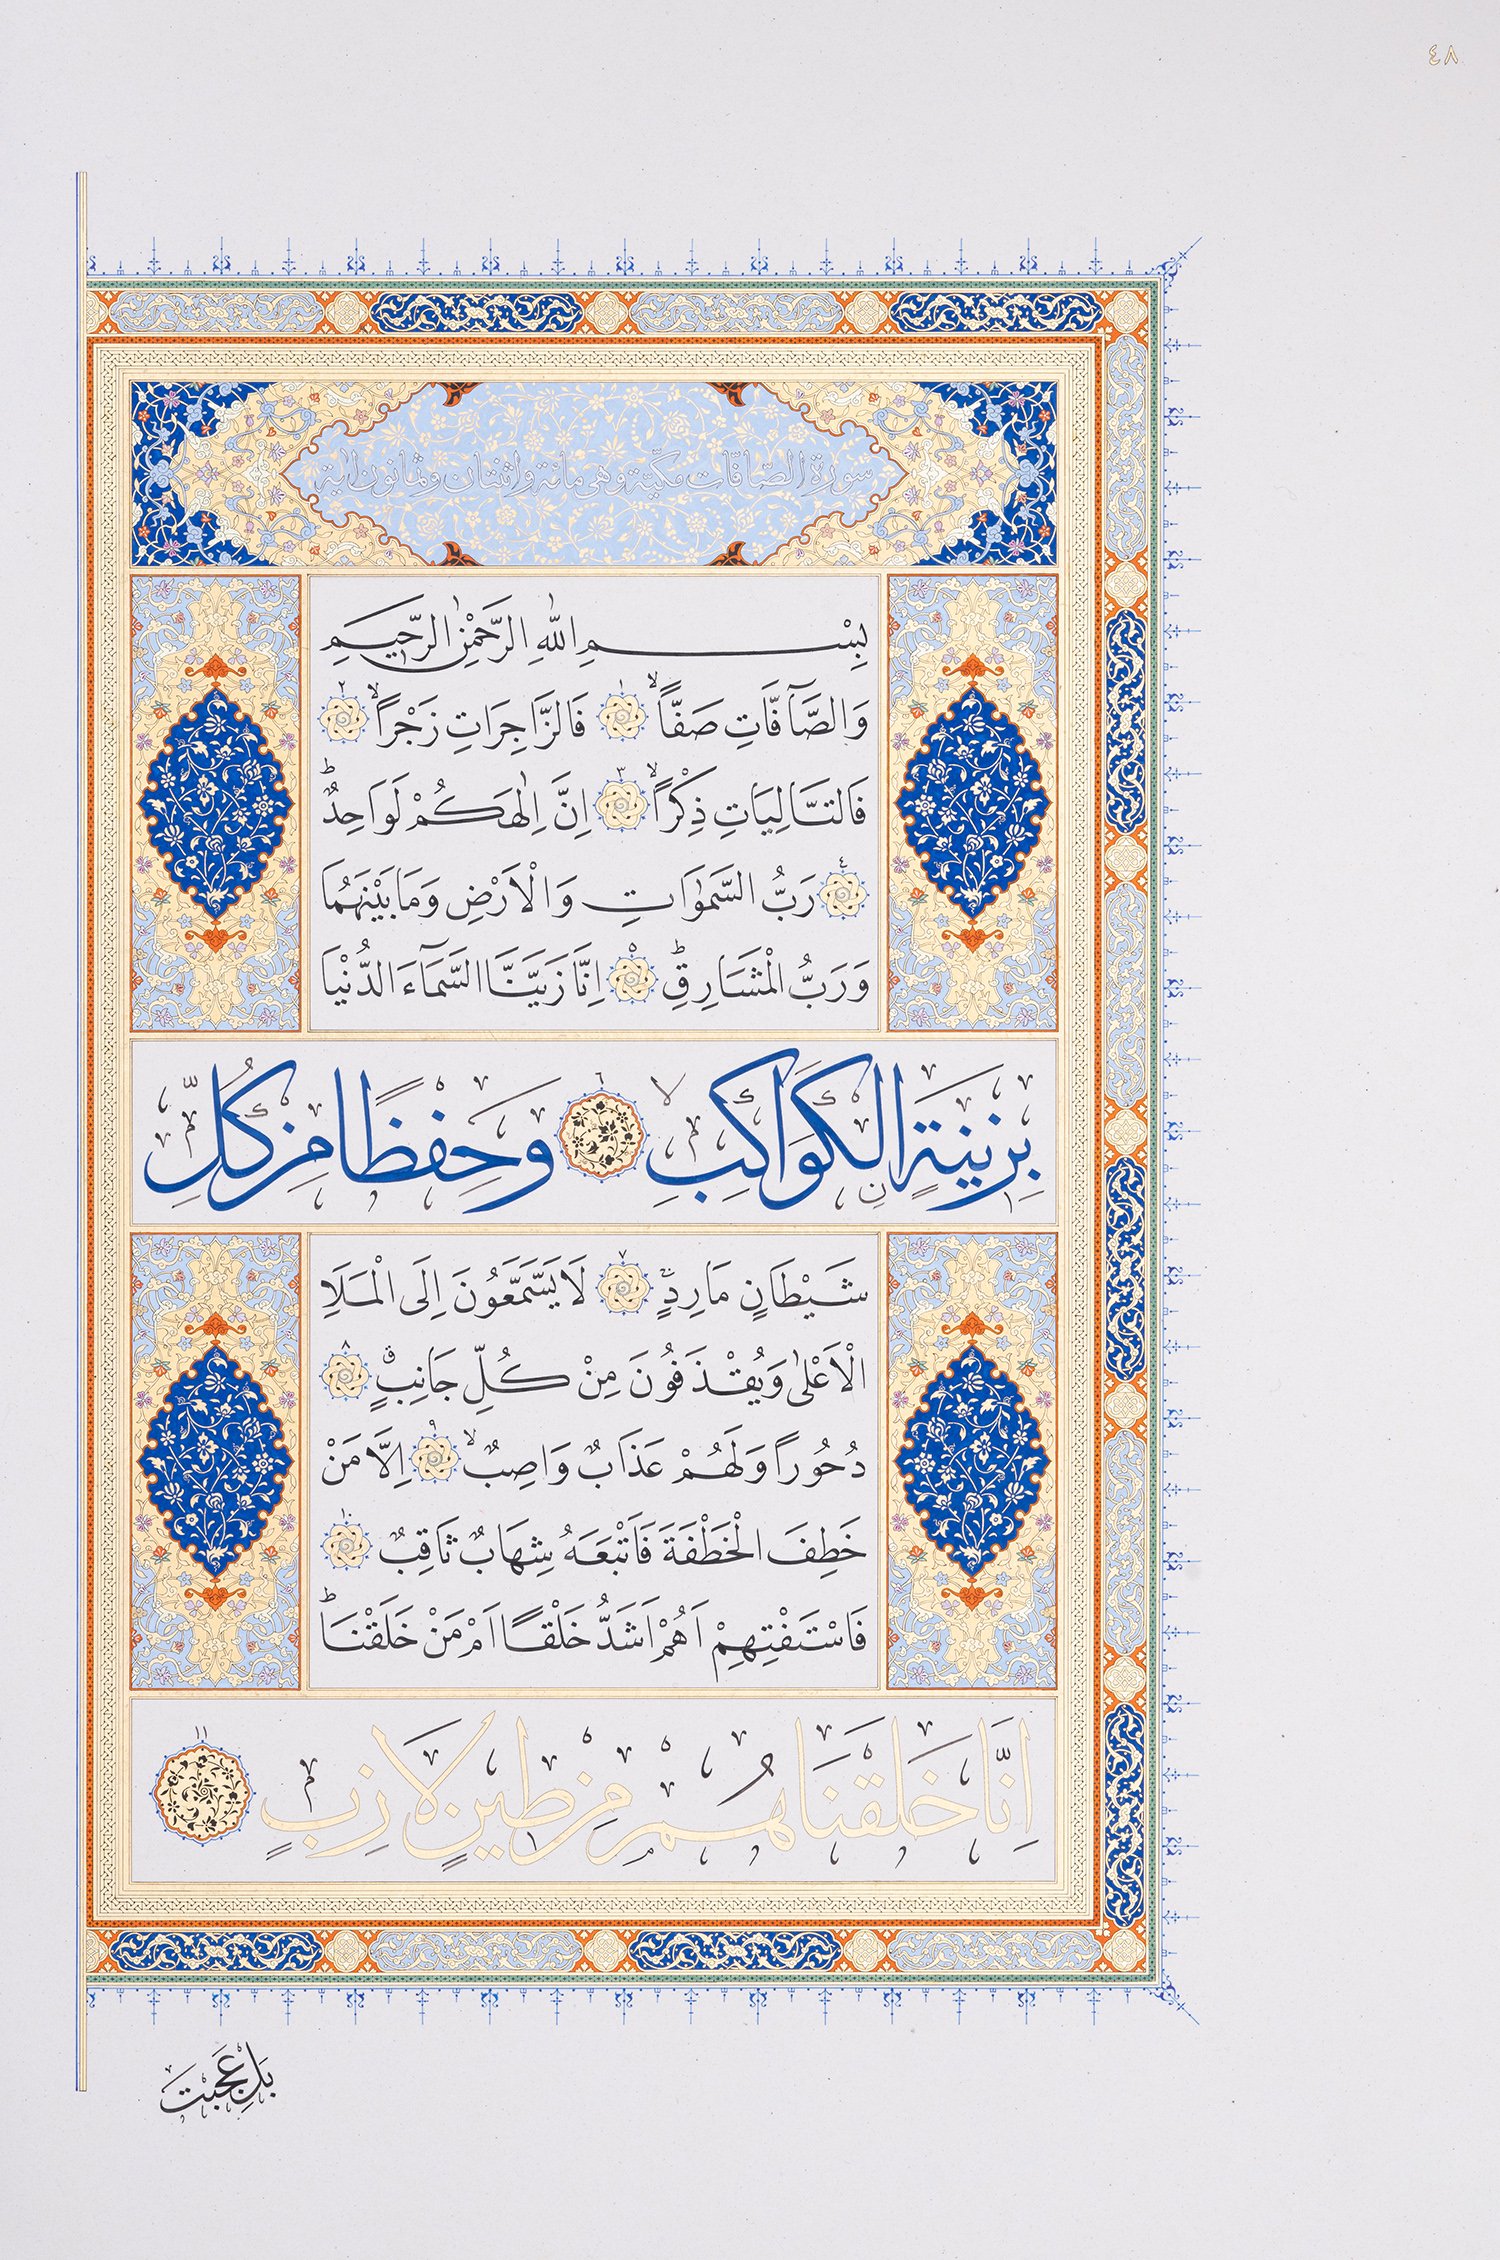 ٤٨
سورة الصّافّات مكيّة وهى مائة واثنتان وثمانون اية
بِسْمِ اللّٰهِ الرَّحْمٰنِ الرَّحِيمِ
وَالصَّٓافَّاتِ صَفًّاۙ ١ فَالزَّاجِرَاتِ زَجْرًاۙ ٢
فَالتَّالِيَاتِ ذِكْرًاۙ ٣ اِنَّ اِلٰهَكُمْ لَوَاحِدٌۜ
٤ رَبُّ السَّمٰوَاتِ وَالْاَرْضِ وَمَا بَيْنَهُمَا
وَرَبُّ الْمَشَارِقِۜ ٥ اِنَّا زَيَّنَّا السَّمَٓاءَ الدُّنْيَا
بِزِينَةٍ ࣙالْكَوَاكِبِۙ ٦ وَحِفْظًا مِنْ كُلِّ
شَيْطَانٍ مَارِدٍۚ ٧ لَا يَسَّمَّعُونَ اِلَى الْمَلَاِ
الْاَعْلٰى وَيُقْذَفُونَ مِنْ كُلِّ جَانِبٍۗ ٨
دُحُورًا وَلَهُمْ عَذَابٌ وَاصِبٌۙ ٩ اِلَّا مَنْ
خَطِفَ الْخَطْفَةَ فَاَتْبَعَهُ شِهَابٌ ثَاقِبٌ ١٠
فَاسْتَفْتِهِمْ اَهُمْ اَشَدُّ خَلْقًا اَمْ مَنْ خَلَقْنَاۜ
اِنَّا خَلَقْنَاهُمْ مِنْ طِينٍ لَازِبٍ ١١
بَلْ عَجِبْتَ